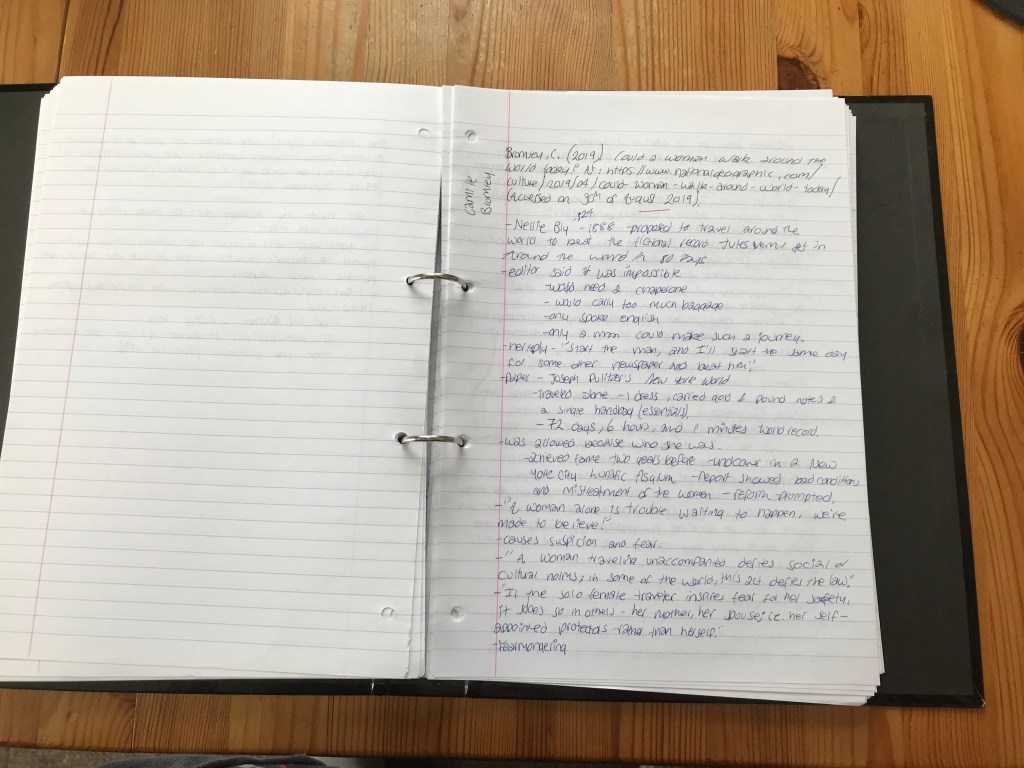 Camille
Bromley
Bromley, C. (2019) Could a woman walk around the
world today? At: https://www.nationalgeographic.com/
culture/2019/04/could-woman-walk-around-world-today/
(Accessed on 30th of August 2019).
- Nellie Bly - 1888 - proposed to travel around the
world to beat the fictional record Jules Verne set in
Around the world in 80 Days
- editor said it was impossible
- would need a chaperone
- would carry too much baggage
- only spoke english
- only a man could make such a journey.
- her reply - "Start the man, and I'll start the same day
for some other newspaper and beat him."
- paper - Joseph Pulitzer's New York World
- traveled alone - 1 dress, carried gold & pound notes &
a single handbag (essentials).
- 72 days, 6 hours, and minutes world record.
- was allowed because who she was.
- achieved fame two years before - undercover in a New
York City Lunatic Asylum - report showed bad conditions
and mistreatment of the women - reform prompted.
- "A woman alone is trouble waiting to happen, we're
made to believe."
- causes suspicion and fear.
- "A woman traveling unaccompanied defies social or
cultural norms; in some of the world, this act defies the law."
- "If the solo female traveler inspires fear for her safety,
it does so in others - her mother, her spouse; i.e. her self-
appointed protectors - rather than herself."
- Fearmongering